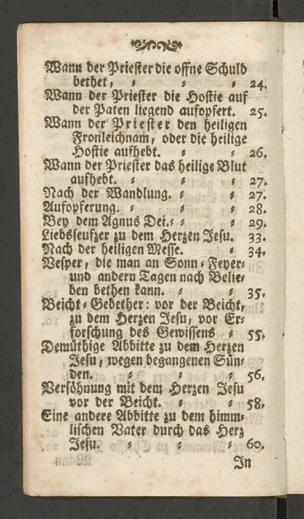 Wann der Priester die offne Schuld
bethet, ⸗ ⸗ ⸗ 24.
Wann der Priester die Hostie auf
der Paten liegend aufopfert. 25.
Wann der Priester den heiligen
Fronleichnam, oder die heilige
Hostie aufhebt. ⸗ ⸗ 26.
Wann der Priester das heilige Blut
aufhebt. ⸗ ⸗ ⸗ 27.
Nach der Wandlung. ⸗ ⸗ 27.
Aufopferung. ⸗ ⸗ ⸗ 28.
Bey dem Agnus Dei.⸗ ⸗ ⸗ 29.
Liebsseufzer zu dem Herzen Jesu. 33.
Nach der heiligen Messe. ⸗ 34.
Vesper, die man an Sonn⸗Feyer⸗
und andern Tagen nach Belie⸗
ben bethen kann. ⸗ ⸗ 35.
Beicht⸗Gebether: vor der Beicht,
zu dem Herzen Jesu, vor Er⸗
forschung des Gewissens ⸗ 55.
Demüthige Abbitte zu dem Herzen
Jesu, wegen begangenen Sün⸗
den. ⸗ ⸗ ⸗ 56.
Versöhnung mit dem Herzen Jesu
vor der Beicht. ⸗ ⸗ 58.
Eine andere Abbitte zu dem himm⸗
lischen Vater durch das Herz
Jesu. ⸗ ⸗ ⸗ 60.
In